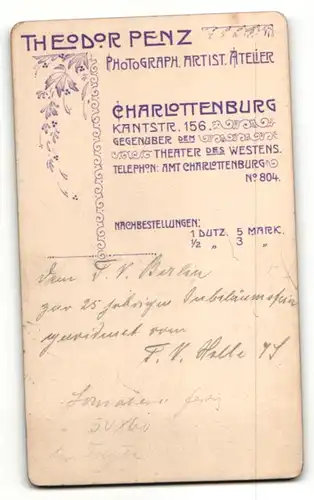 THEODOR PENZ
PHOTOGRAPH. ARTIST. ATELIER
CHARLOTTENBURG
KANTSTR. 156.
GEGENÜBER DEM
THEATER DES WESTENS.
TELEPHON: AMT CHARLOTTENBURG
No 804.
NACHBESTELLUNGEN:
1 DUTZ. 5 MARK.
½ „ 3 „
Dem T. V. Berlin
zur 25 jährigen
gewidmet vom
T. V. Halle
50x60